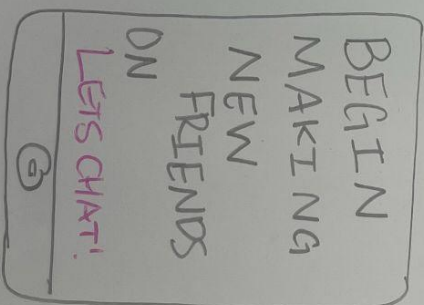 BEGIN
MAKING
NEW
FRIENDS
ON
LETS CHAT!